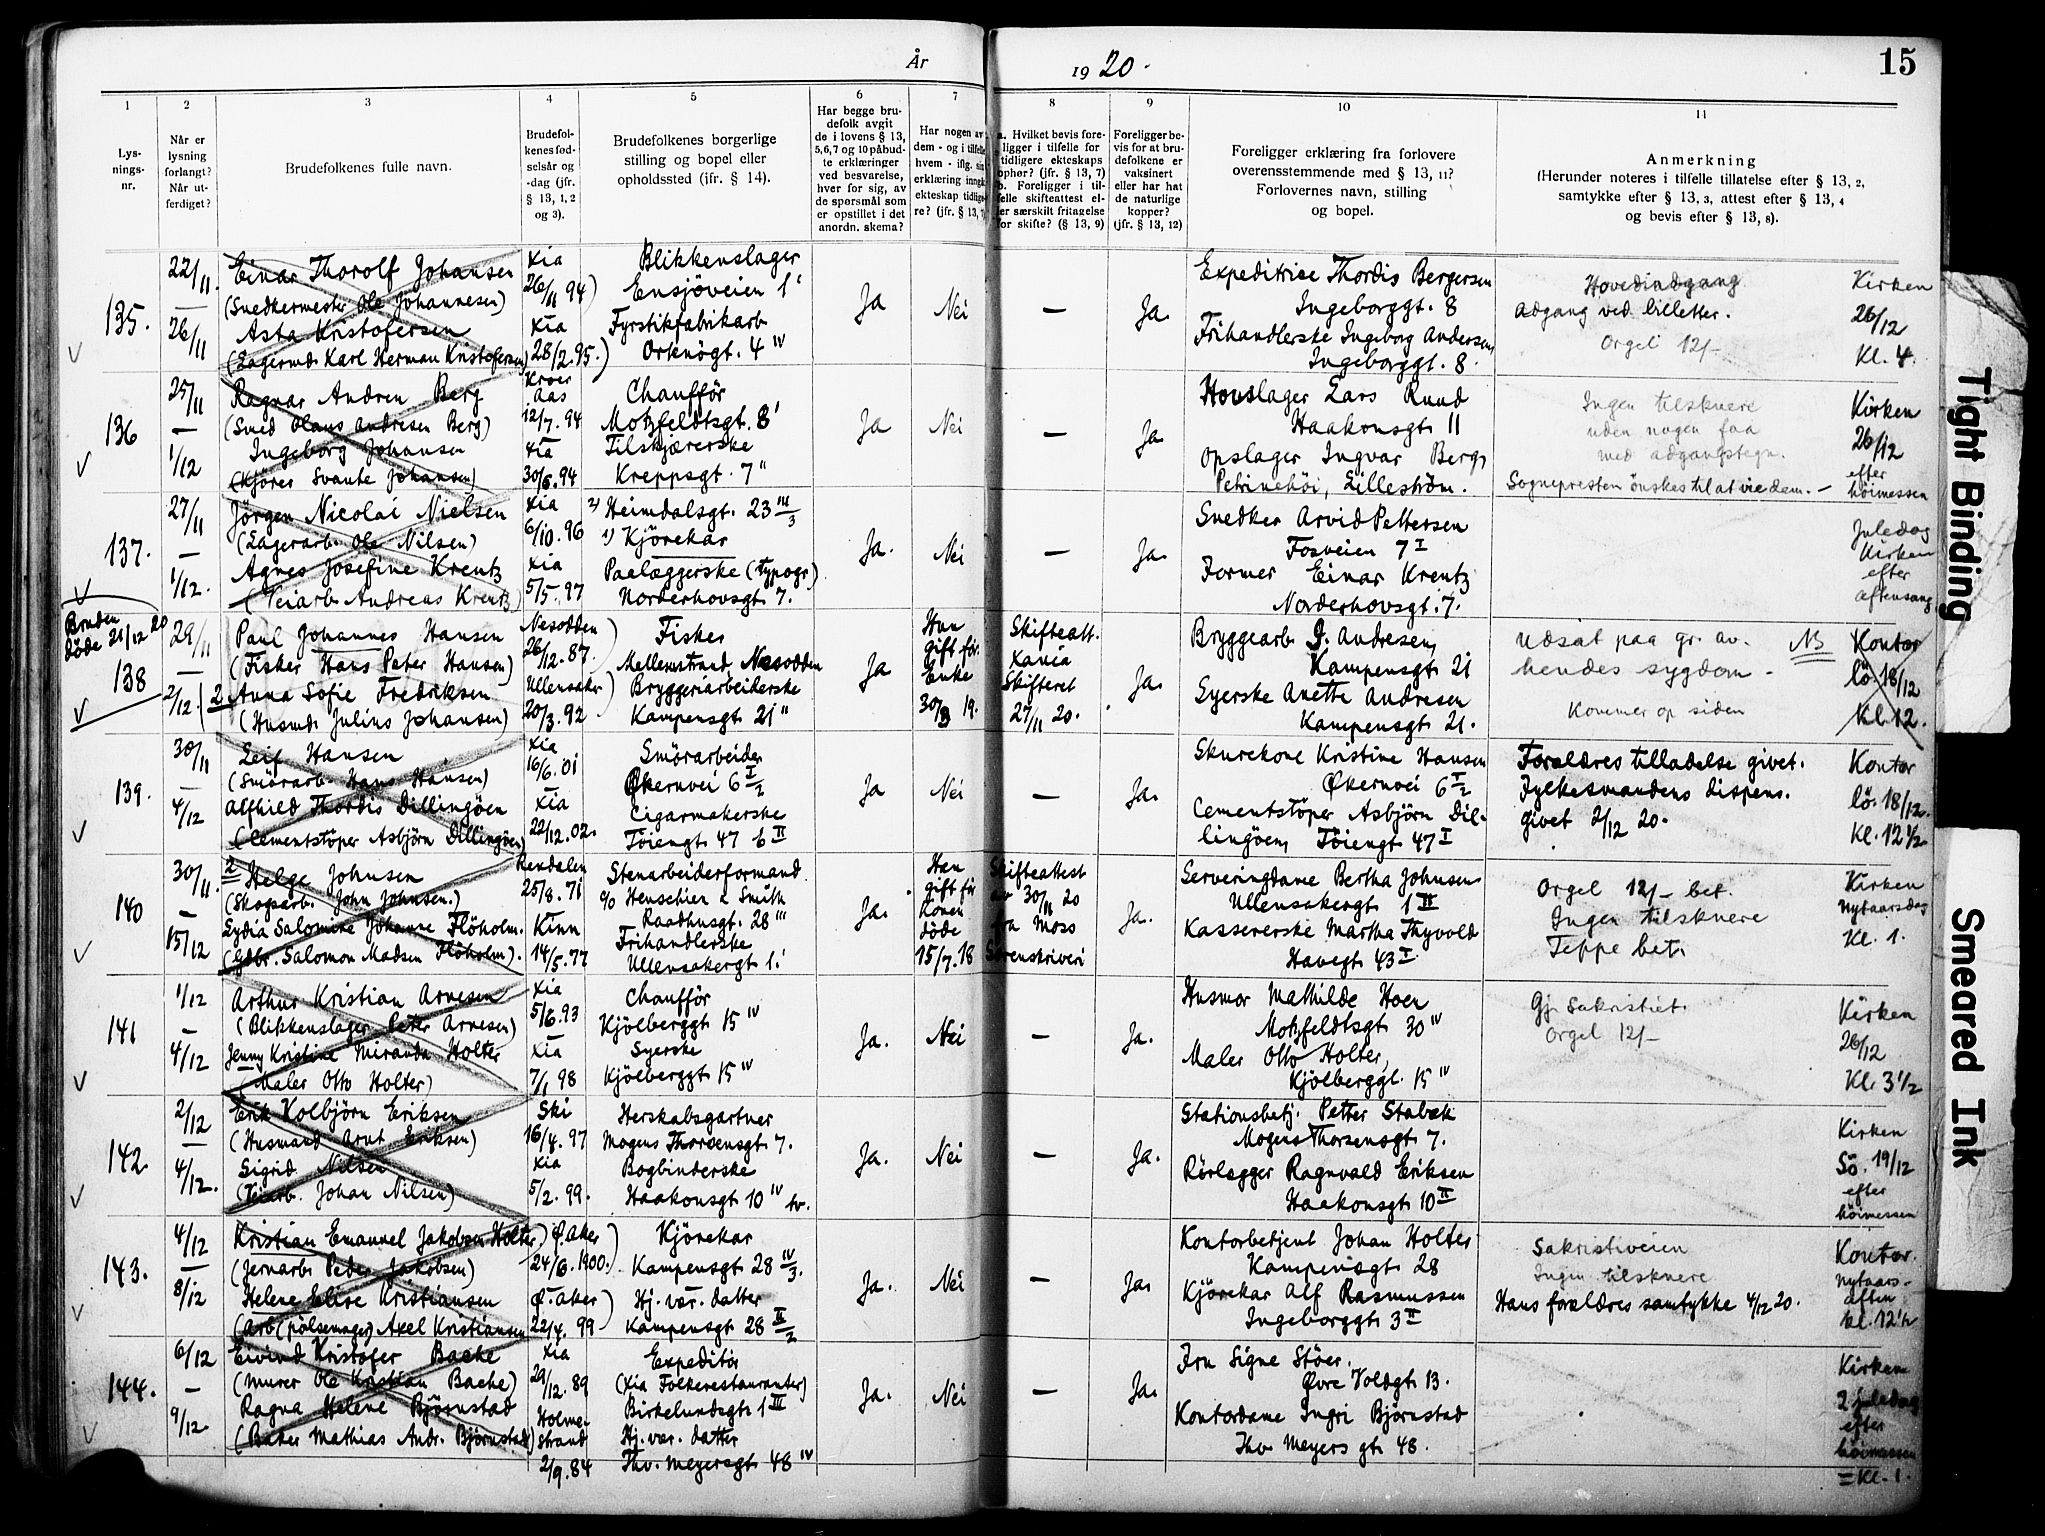 År 1920.
15
1
2
3
4
5
6
7
8
9
10
11
Lys-
nings-
nr.
Når er
lysning
forlangt?
Når ut-
ferdiget?
Brudefolkenes fulle navn.
Brudefol-
kenes fød-
selsår og
-dag (jfr.
§ 13, 1, 2
og 3).
Brudefolkenes borgerlige
stilling og bopel eller
opholdssted (ifr. § 14).
Har begge bru-
defolk avgit
de i lovens § 13,
5, 6, 7 og 10 påbud-
te erklæringer
ved besvarelse,
hver for sig, av
de spørsmål som
er opstillet i det
anordn. skema?
Har nogen av
dem - og i tilfelle
hvem - iflg. sin
erklæring inngå
ekteskap tidlige-
re? (jfr. § 13, 7)
a. Hvilket bevis fore-
ligger i tilfelle for
tidligere ekteskaps
ophør? (jfr. § 13, 7)
b. Foreligger i til-
felle skifteattest el-
ler særskilt fritagelse
for skifte? (§ 13, 9)
Foreligger be-
vis for at bru-
defolkene er
vaksinert
eller har hat
de naturlige
kopper?
(jfr. § 13, 12)
Foreligger erklæring fra forlovere
overensstemmende med § 13, 11?
Forlovernes navn, stilling
og bopel.
Anmerkning
(Herunder noteres i tilfelle tillatelse efter § 13, 2,
samtykke efter § 13, 3, attest efter § 13, 4
og bevis efter § 13, 8).
135.
22/11.
—
26/11
Einar Thorolf Johansen
(Snedkermester Ole Johannesen)
Asta Kristofersen
(Lagermd. Karl Herman Kristofersen)
Xia
26/11 94)
Xia
28/2.95.)
Blikkenslager
Ensjöveien 1'
Fyrstikfabrikarb
Orknögt. 4 IV
Ja
Nei
—
Ja.
Expeditrice Thordis Bergersen
Ingeborggt. 8
Frihandlerske Ingeborg Andersen,
Ingeborggt. 8.
Hovedindgang
Adgang ved billetter.
Orgel 12/-
Kirken
26/12
Kl. 4.
136
25/11
—
1/12
Ragnar Andreu Berg
(Sned Olaus Andresen Berg)
Ingeborg Johansen
(Kjörer Svante Johansen)
Kroer
Aas
12/7. 94
Xia
30/6.94
Chaufför
Motzfeldtsgt. 8'
Tilskjærerske
Kreppsgt. 7"
Ja
Nei
—
Ja.
Hovslager Lars Ruud
Haakonsgt. 11
Opslager Ingvar Berg,
Petrinehöi, Lilleström.
Ingen tilskuere
uden nogen faa
med adgangstegn.
Sognepresten önskes til at vie dem. —
Kirken
26/12
efter
höimessen
137.
27/11
—
1/12.
Jörgen Nicolai Nielsen
(Lagerarb. Ole Nilsen)
Agnes Josefine Kreutz
(Veiarb. Andreas Kreutz)
Xia
6/10.96
Xia
5/5.97
2) Heimdalsgt. 23 III/3
1) Kjörekar
Paalæggerske (typogr.)
Norderhovsgt. 7.
Ja.
Nei
—
Ja.
Snedker Arvid Pettersen
Fosveien 7 I
Former Einar Kreutz
Norderhovsgt. 7.
Juledag
Kirken
efter
aftensang.
Bruden
döde 21/12 20
138
29/11
2/12.
Paul Johannes Hansen
(Fisker Hans Peter Hansen)
2 Anna Sofie Fredriksen
(Husmd. Julius Johansen)
Nesodden
26/12.87.
Ullensaker
20/3.92
Fisker
Mellemstrand, Nesodden
Bryggeriarbeiderske
Kampensgt. 21"
Ja
Hun
gift før.
Enke
30/3 19.
Skifteatt.
Xania
Skifteret
27/11 20.
Ja.
Bryggearb. J. Andresen,
Kampensgt. 21
Syerske Anette Andresen
Kampensgt. 21.
Udsat paa gr. av.
hendes sygdom.
Kommer op siden
NB
Kontor
lö. 18/12
Kl. 12.
139.
30/11
—
4/12
Leif Hansen
(Smörarb. Hans Hansen)
Alfhild Thordis Dillingöen
(Cementstöper Asbjörn Dillingöen)
Xia
16/6.01
Xia
22/12.02.
Smörarbeider
Økernvei 6 I/2
Cigarmakerske
Töiengt. 47 6 II
Ja
Nei
—
Ja.
Skurekone Kristine Hansen
Økernvei 6 I/2
Cementstöper Asbjörn Dil-
lingöen, Töiengt. 47 I
Foreldres tilladelse givet.
Fylkesmandens dispens.
givet 2/12 20.
Kontor
lö. 18/12.
Kl. 12 1/2
140
30/11.
—
15/12
2 Helge Johnsen
(Skogsarb. John Johnsen.)
Lydia Salomine Johanse Flöholm.
(Gdbr. Salomon Madsen Flöholm).
Rendalen
25/8.71
Kinn
14/5.77
Stenarbeiderformand
c/o Henschien & Smith
Raadhusgt. 28 "'
Frihandlerske
Ullensakergt. 1.'
Ja.
Han
gift før
Konen
döde
15/7.18
Skifteattest
av 30/11 20
fra Moss
Sorenskriveri
Ja.
Serveringdame Bertha Johnsen
Ullensakergt. 1 II
Kassererske Martha Thyvold
Havegt. 43 I
Orgel 12/- bet.
Ingen tilskuere
Teppe bet.
Kirken
Nytaarsdag
Kl. 1.
141
1/12
—
4/12
Arthur Kristian Arnesen
(Blikkenslager Peter Arnesen)
Jenny Kristine Miranda Holter
(Maler Otto Holter)
Xia
5/6.93
Xia
7/1 98
Chaufför
Kjölberggt. 15 IV
Syerske
Kjölberggt. 15 IV
Ja.
Nei
—
Ja.
Husmor Mathilde Hoen
Motzfeldtsgt. 30 IV
Maler Otto Holter,
Kjölberggt. 15 IV
Gj. Sakristiet
Orgel 12/-
Kirken
26/12
Kl. 3 1/2
142.
2/12
—
4/12.
Erik Kolbjörn Eriksen
(Husmand Arnt Eriksen)
Sigrid Nilsen
(Veiarb. Johan Nilsen)
Ski
16/4.97
Xia
5/2.99.
Herskabsgartner
Mogens Thorsensgt. 7.
Bogbinderske
Haakonsgt. 10 IV tv.
Ja.
Nei
—
Ja.
Stationsbetj. Petter Stabæk
Mogens Thorsensgt. 7.
Rörlægger Ragnvald Eriksen
Haakonsgt. 10 II
Kirken
Sö. 19/12
efter
höimessen
143.
4/12
—
8/12
Kristian Emanuel Jakobsen Holter
(Jernarb. Peder Jakobsen)
Helene Elise Kristiansen
(Arb. (pölsemager) Axel Kristiansen
Ø. Aker
24/6.1900.
Ø. Aker
22/4.99
Kjörekar
Kampensgt. 28 IV/3.
Hj. vær. datter
Kampensgt. 28 II/2
Ja.
Nei
—
Ja.
Kontorbetjent Johan Holter
Kampensgt. 28
Kjörekar Alf Rasmussen
Ingeborggt. 3 II
Sakristiveien
Ingen tilskuere
Hans forældres samtykke 4/12 20.
Kontor.
Nytaars-
aften
kl. 12 1/2
144.
6/12
—
9/12
Eivind Kristofer Bache
(Murer Ole Kristian Bache)
Ragna Helene Björnstad
(Bager Mathias Andr. Björnstad)
Xia
29/12.89
Holme-
strand
2/9.84
Expeditör
(Xia Folkerestauranter)
Birkelundsgt. 1 III
Hj. vær. datter
Thv. Meyersgt. 48 IV
Ja.
Nei
—
Ja.
Fru Signe Stöer.
Øvre Voldgt. 13.
Kontordame Ingri Björnstad
Thv. Meyers gt. 48.
Kirken
2 juledag
efter
höimessen
= Kl. 1.
Tight Binding
Smeared Ink